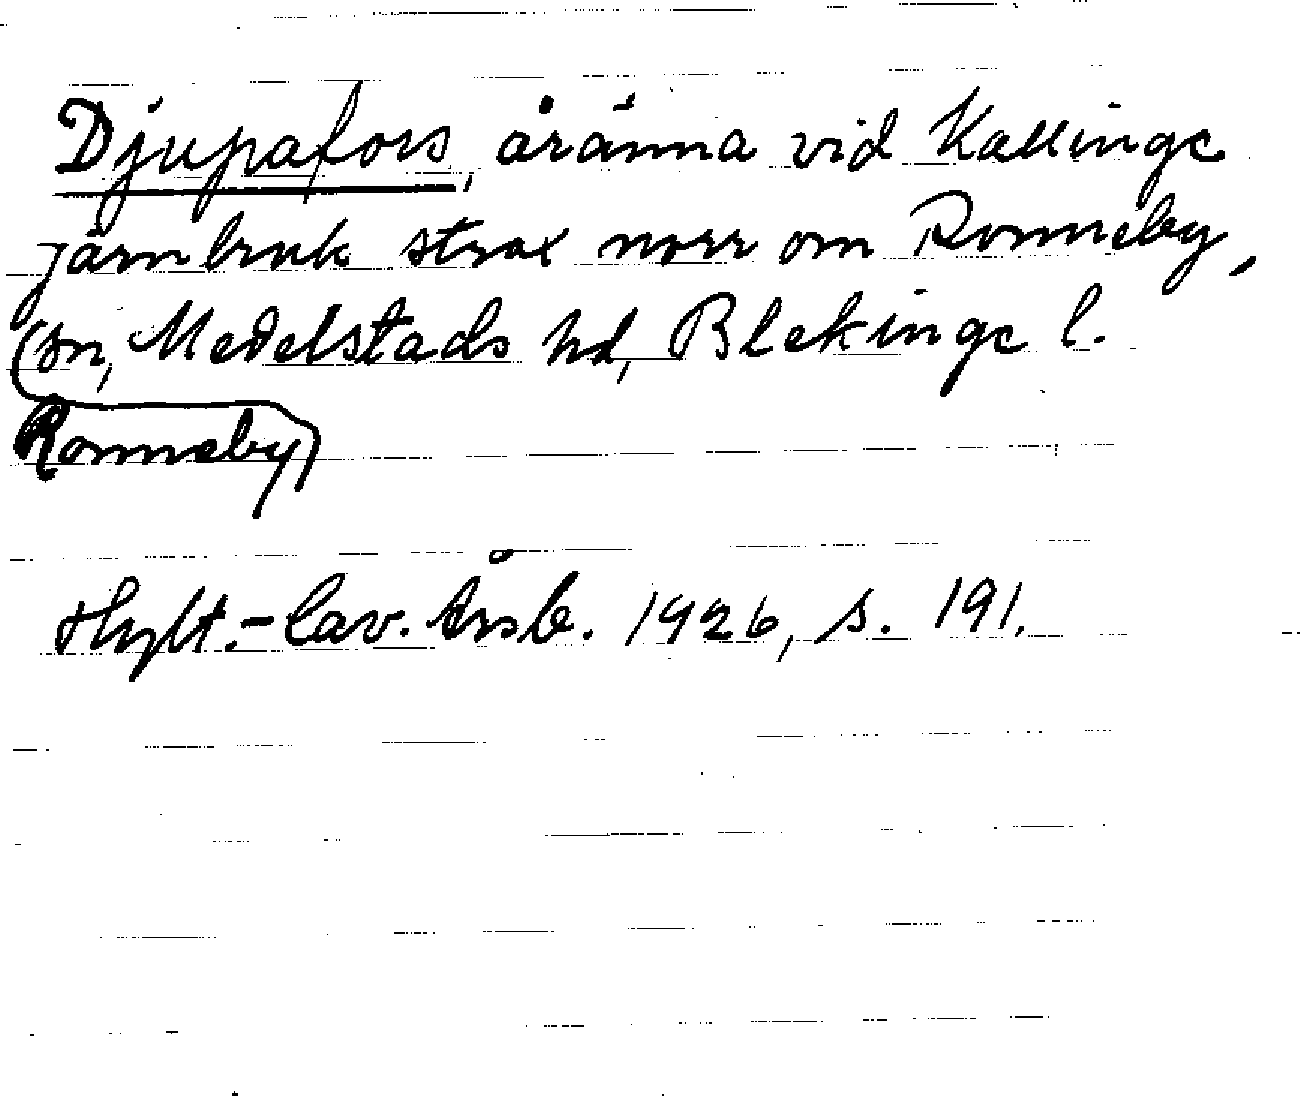 Djupafors, åränna vid Kallinge
järnbruk strax norr om Ronneby,
(sn, Medelstads hd, Blekinge l.
Ronneby)
Hylt.-Cav. Årsb. 1926, s. 191.